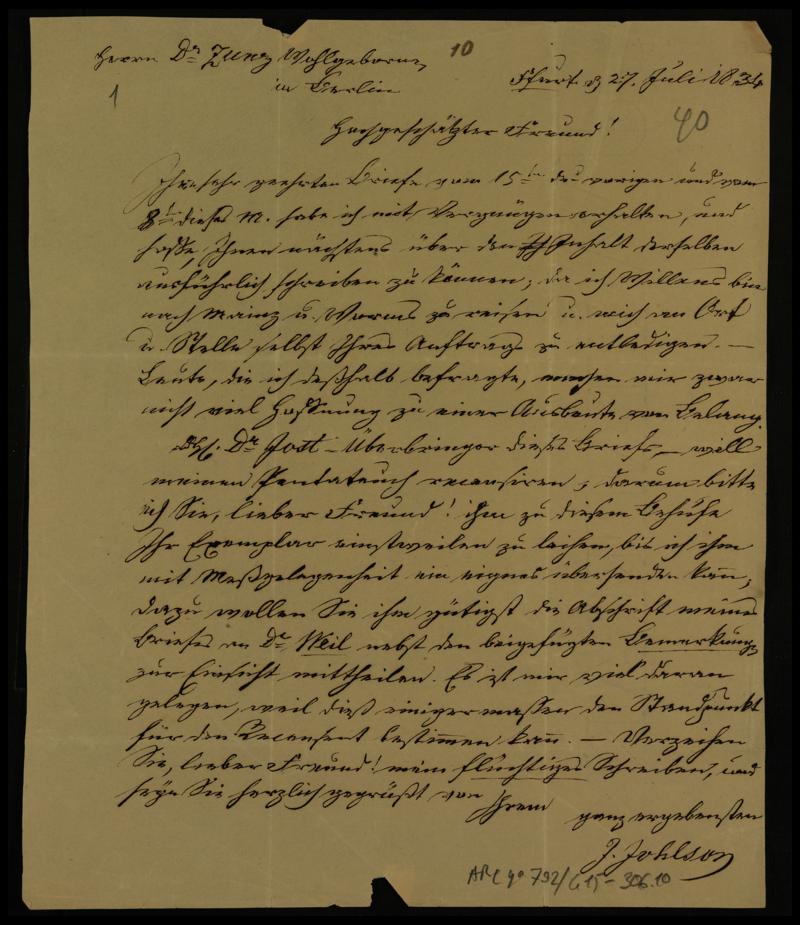 Herrn Dr Zunz Wohlgeboren
10
in Berlin
1
Ffurt d 27. Juli 1834
Hochgeschätzter Freund!
40
Ihre sehr geehrten Briefe vom 15ten des vorigen und vom
8ten dieses M. habe ich mit Vergnügen erhalten, und
hoffe, Ihnen nächstens über den Inhalt derselben
ausführlich schreiben zu können; da ich Willens bin
nach Mainz u. Worms zu reisen u. mich an Ort
u. Stelle selbst Ihres Auftrags zu entledigen. —
Leute, die ich deßhalb befragte, machen mir zwar
nicht viel Hoffnung zu einer Ausbeute von Belang.
Dr Jost – Überbringer dieses Briefes – will
meinen Pentateuch recensiren; darum bitte
ich Sie, lieber Freund! ihm zu diesem Behufe
Ihr Exemplar einstweilen zu leihen, bis ich ihm
mit Meßgelegenheit ein eignes übersenden kann;
dazu wollen Sie ihm gütigst die Abschrift meines
Briefes an Dr Weil nebst den beigefügten Bemerkungen
zur Einsicht mittheilen. Es ist mir viel daran
gelegen, weil dieß einigermassen den Standpunkt
für den Recensent bestimmen kann. — Verzeihen
Sie, lieber Freund! mein flüchtiges Schreiben, und
seyn Sie herzlich gegrüßt von
Ihrem ganz ergebensten
J. Johlson
ARC 4° 792/G15-306.10